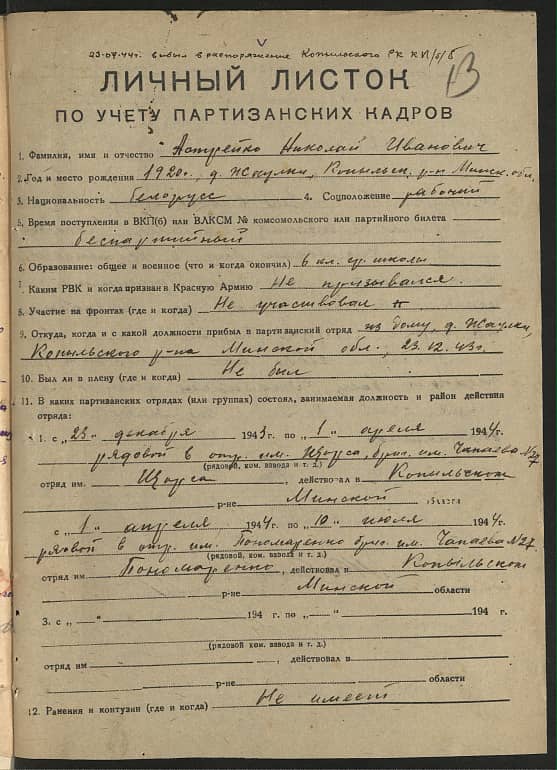 23-07-44г. выбыл в распоряжение Копыльского РК КП/б/б
13
ЛИЧНЫЙ ЛИСТОК
ПО УЧЕТУ ПАРТИЗАНСКИХ КАДРОВ
1. Фамилия, имя и отчество Астрейко Николай Иванович
2. Год и место рождения 1920г., д. Жаулки, Копыльск. р-н Минск. обл.
3. Национальность белорусс 4. Соцположение рабочий
5. Время поступления в ВКП(б) или ВЛКСМ № комсомольского или партийного билета
беспартийный
6. Образование: общее и военное (что и когда окончил) 6 кл. ср. школы
7. Каким РВК и когда призван в Красную Армию Не призывался.
8. Участие на фронтах (где и когда) Не участвовал
9. Откуда, когда и с какой должности прибыл в партизанский отряд из дому, д. Жаулки,
Копыльского р-на Минской обл., 23.12.43г.
10. Был ли в плену (где и когда) Не был
11. В каких партизанских отрядах (или группах) состоял, занимаемая должность и район действия
отряда:
1. с „23" декабря 1943 г. по „1" апреля 1944 г.
рядовой в отр. им. Щорса, бриг. им. Чапаева №27
(рядовой, ком. взвода и т. д.)
отряд им. Щорса, действовал в Копыльском
р-не Минской области
с „1" апреля 1944 г. по „10" июля 1944 г.
рядовой в отр. им. Пономаренко бриг. им. Чапаева №27.
(рядовой, ком. взвода и т. д.)
отряд им. Пономаренко, действовал в Копыльском
р-не Минской области
3. с „ " 194 г. по „ " 194 г.
(рядовой, ком. взвода и т. д.)
отряд им , действовал в
р-не области
12. Ранения и контузии (где и когда) Не имеет